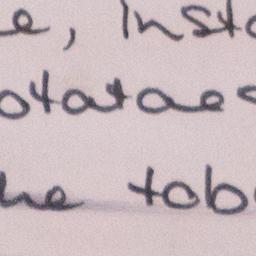 e, Inst
otataes
he tob